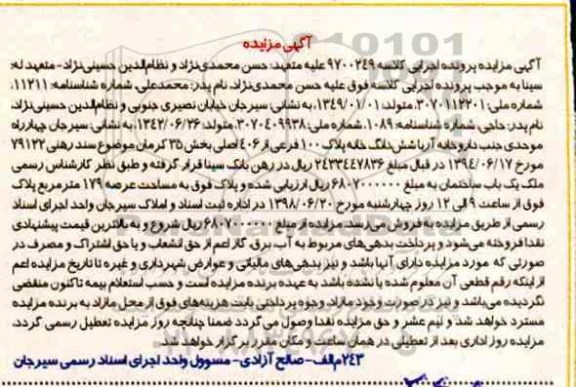 آگهی مزایده
آگهی مزایده پرونده اجرایی کلاسه ۹۷۰۰۲۴۹ علیه متعهد: حسن محمدی‌نژاد و نظام‌الدین حسینی‌نژاد- متعهد له:
سینا به موجب پرونده اجرایی کلاسه فوق علیه حسن محمدی‌نژاد، نام پدر: محمدعلی، شماره شناسنامه: ۱۱۲۱۱،
شماره ملی: ۳۰۷۰۱۱۲۲۰۱، متولد: ۱۳۴۹/۰۱/۰۱، به نشانی: سیرجان خیابان نصیری جنوبی و نظام‌الدین حسینی‌نژاد،
نام پدر: حاجی، شماره شناسنامه: ۱۰۸۹، شماره ملی: ۳۰۷۰۴۰۹۹۳۸، متولد: ۱۳۴۲/۰۶/۲۶، به نشانی: سیرجان چهارراه
موحدی جنب داروخانه آرا شش‌خانگ خانه پلاک ۱۰۰ فرعی از ۴۰۶ اصلی بخش ۳۵ کرمان موضوع سند رهنی ۷۹۱۲۲
مورخ ۱۳۹۴/۰۶/۱۷ در قبال مبلغ ۲۴۳۳۴۴۷۸۳۶ ریال در رهن بانک سینا قرار گرفته و طبق نظر کارشناس رسمی
ملک یک باب ساختمان به مبلغ ۶۸۰۷۰۰۰۰۰۰ ریال ارزیابی شده و پلاک فوق به مساحت عرصه ۱۷۹ متر مربع پلاک
فوق از ساعت ۹ الی ۱۲ روز چهارشنبه مورخ ۱۳۹۸/۰۶/۲۰ در اداره ثبت اسناد و املاک سیرجان واحد اجرای اسناد
رسمی از طریق مزایده به فروش می‌رسد. مزایده از مبلغ ۶۸۰۷۰۰۰۰۰۰ ریال شروع و به بالاترین قیمت پیشنهادی
نقدا فروخته می‌شود و پرداخت بدهی‌های مربوط به آب، برق، گاز اعم از حق انشعاب و یا حق اشتراک و مصرف در
صورتی که مورد مزایده دارای آنها باشد و نیز بدهی‌های مالیاتی و عوارض شهرداری و غیره تا تاریخ مزایده اعم
از اینکه رقم قطعی آن معلوم شده یا نشده باشد به عهده برنده مزایده است و حسب استعلام بیمه تاکنون منقضی
نگردیده می‌باشد و نیز در صورت وجود مازاد، وجوه پرداختی بابت هزینه‌های فوق از محل مازاد به برنده مزایده
مسترد خواهد شد و نیم عشر و حق مزایده نقدا وصول می‌گردد ضمنا چنانچه روز مزایده تعطیل رسمی گردد،
مزایده روز اداری بعد از تعطیلی در همان ساعت و مکان مقرر برگزار خواهد شد.
۲۴۳م‌الف- صالح آزادی- مسوول واحد اجرای اسناد رسمی سیرجان